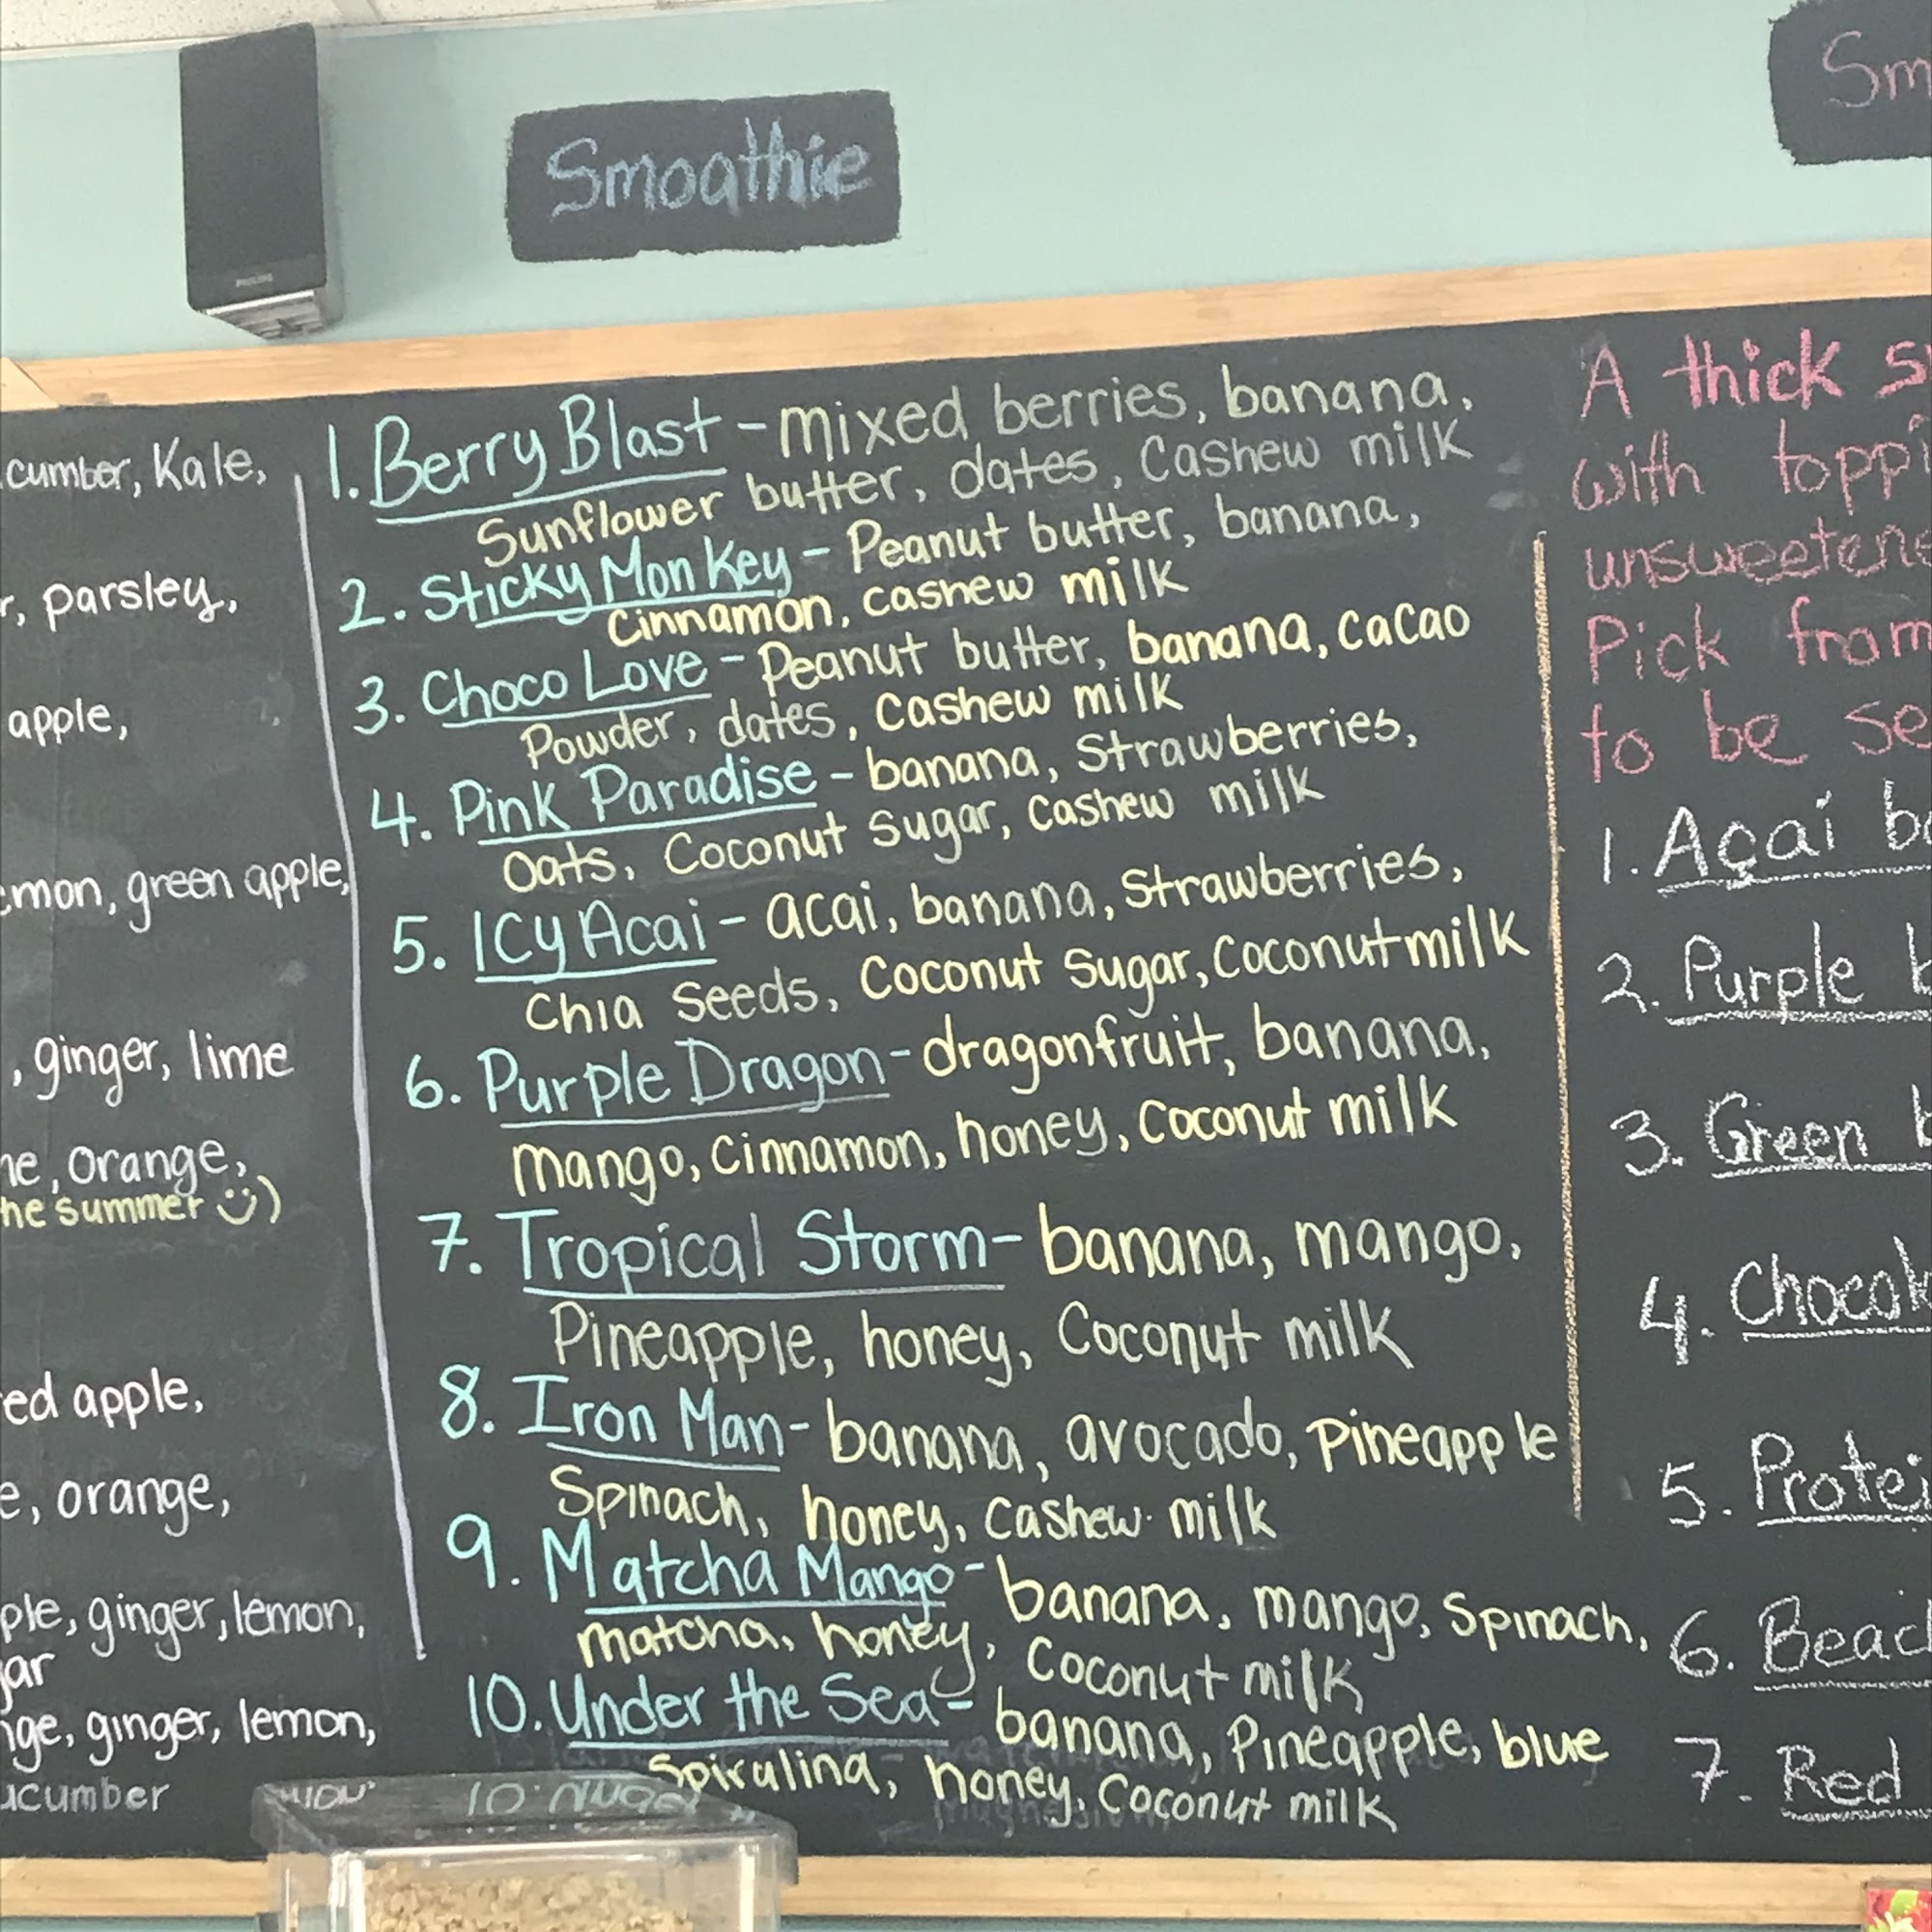 Smoothie
Sm
PHILIPS
cumber, Kale,
r, parsley,
apple,
emon, green apple,
, ginger, lime
ne, orange,
he summer
ed apple,
e, orange,
ple, ginger, lemon,
gar
nge, ginger, lemon,
ucumber
1. Berry Blast - mixed berries, banana,
Sunflower butter, dates, Cashew milk
2. Sticky Monkey - Peanut butter, banana,
Cinnamon, cashew milk
3. Choco Love - Peanut butter, banana, cacao
Powder, dates, Cashew milk
4. Pink Paradise - banana, Strawberries,
Oats, Coconut Sugar, Cashew milk
5. Icy Acai - acai, banana, Strawberries,
Chia Seeds, Coconut Sugar, Coconut milk
6. Purple Dragon - dragonfruit, banana,
mango, cinnamon, honey, Coconut milk
7. Tropical Storm - banana, mango,
Pineapple, honey, Coconut milk
8. Iron Man - banana, avocado, Pineapple
Spinach, honey, Cashew milk
9. Matcha Mango - banana, mango, Spinach,
matcha, honey, Coconut milk
10. Under the Sea - banana, Pineapple, blue
Spirulina, honey, Coconut milk
A thick s
with toppi
unsweetene
Pick from
to be se
1. Açaí b
2. Purple b
3. Green b
4. Chocol
5. Protei
6. Beac
7. Red